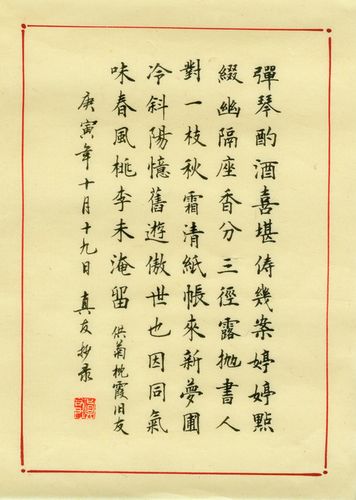 彈琴酌酒喜堪俦幾案婷婷點
綴幽隔座香分三徑露抛書人
對一枝秋霜清紙帳來新夢圃
冷斜陽憶舊遊傲世也因同氣
味春風桃李未淹留 供菊枕霞旧友
庚寅年十月十九日 真友抄录